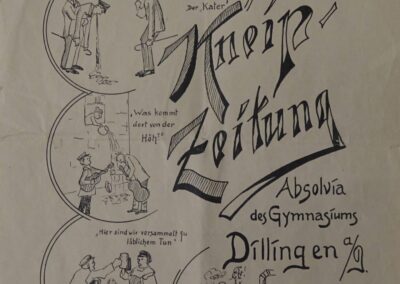 Der „Kater"
Kneip-
Zeitung
„Was kommt
dort von der
Höh?"
Absolvia
des Gymnasiums
Dillingen a/D.
„Hier sind wir versammelt zu
löblichem Tun"